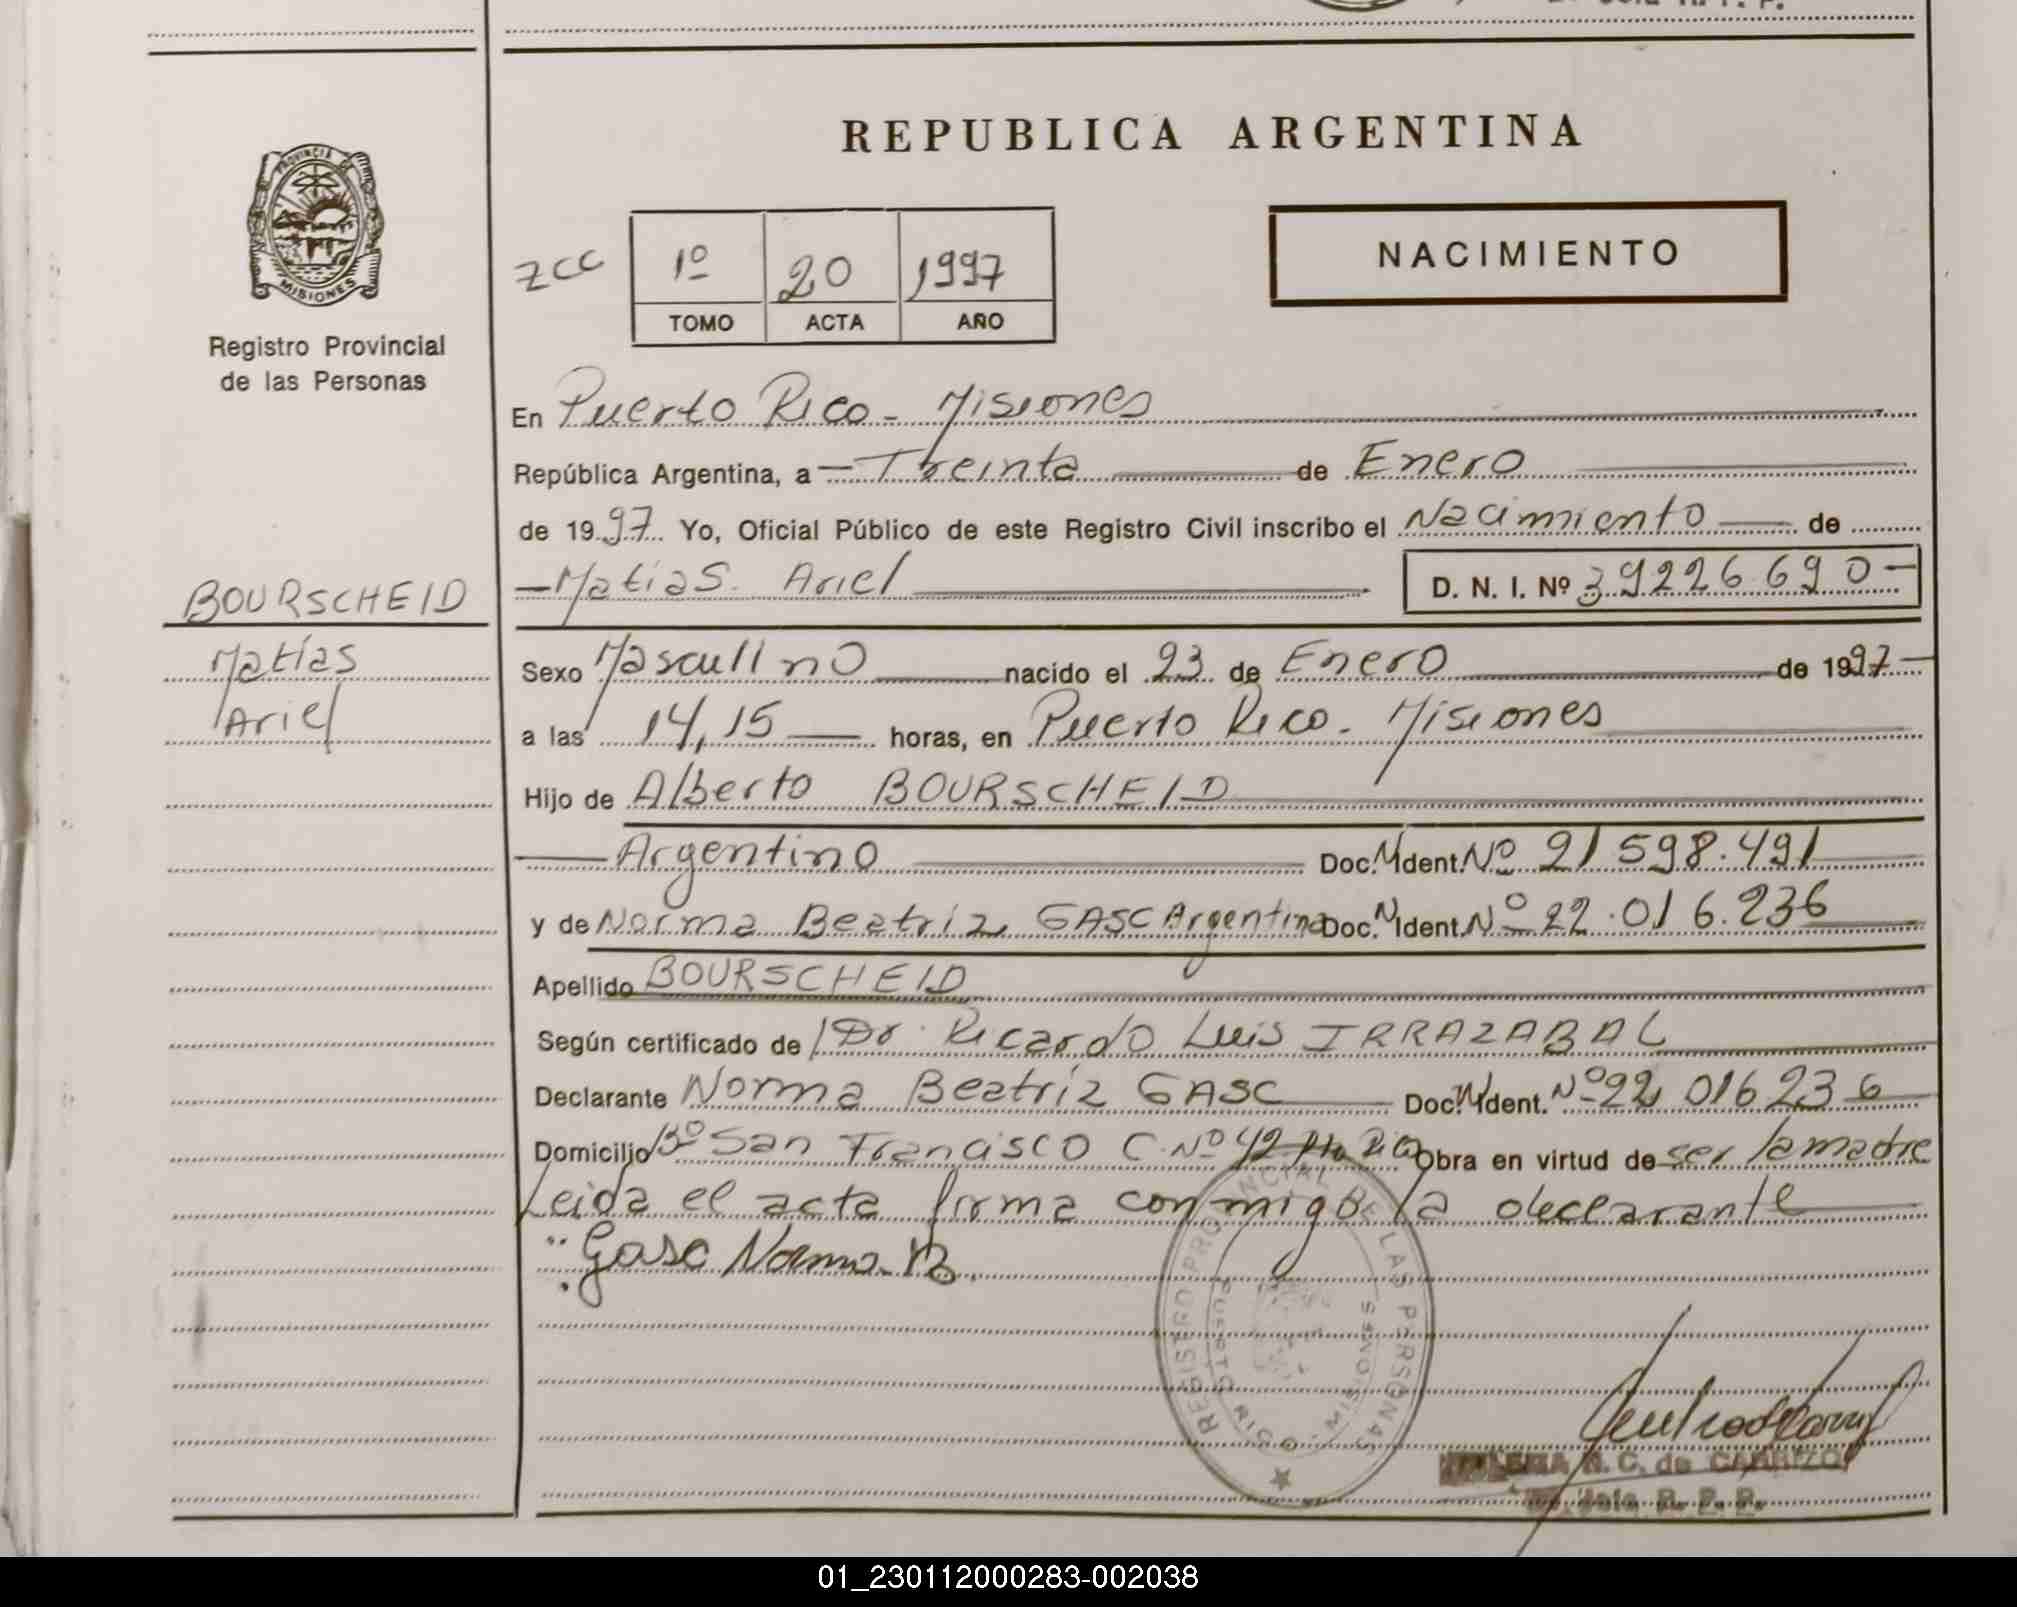 REPUBLICA ARGENTINA
PROVINCIA DE
MISIONES
Registro Provincial
de las Personas
ZCC
1º 20 1997
TOMO ACTA AÑO
NACIMIENTO
En Puerto Rico - Misiones
República Argentina, a Treinta de Enero
de 1997 Yo, Oficial Público de este Registro Civil inscribo el Nacimiento de
Matias Ariel D. N. I. Nº 39226.690-
BOURSCHEID
Matías
Ariel
Sexo Masculino nacido el 23 de Enero de 1997
a las 14,15 horas, en Puerto Rico - Misiones
Hijo de Alberto BOURSCHEID
Argentino Doc. N Ident. Nº 21 598.491
y de Norma Beatriz GASC Argentina Doc. N Ident. Nº 22.016.236
Apellido BOURSCHEID
Según certificado de Dr. Ricardo Luis IRRAZABAL
Declarante Norma Beatriz GASC Doc. N Ident. Nº 22 016 236
Domicilio Bº San Francisco C. Nº 42 Pto Rico Obra en virtud de ser la madre
Leida el acta firma conmigo la declarante
Gasc Norma B.
REGISTRO PROVINCIAL DE LAS PERSONAS
PUERTO RICO - MISIONES
R. C. de CARRIZO
Jefe R. P. P.
01_230112000283-002038